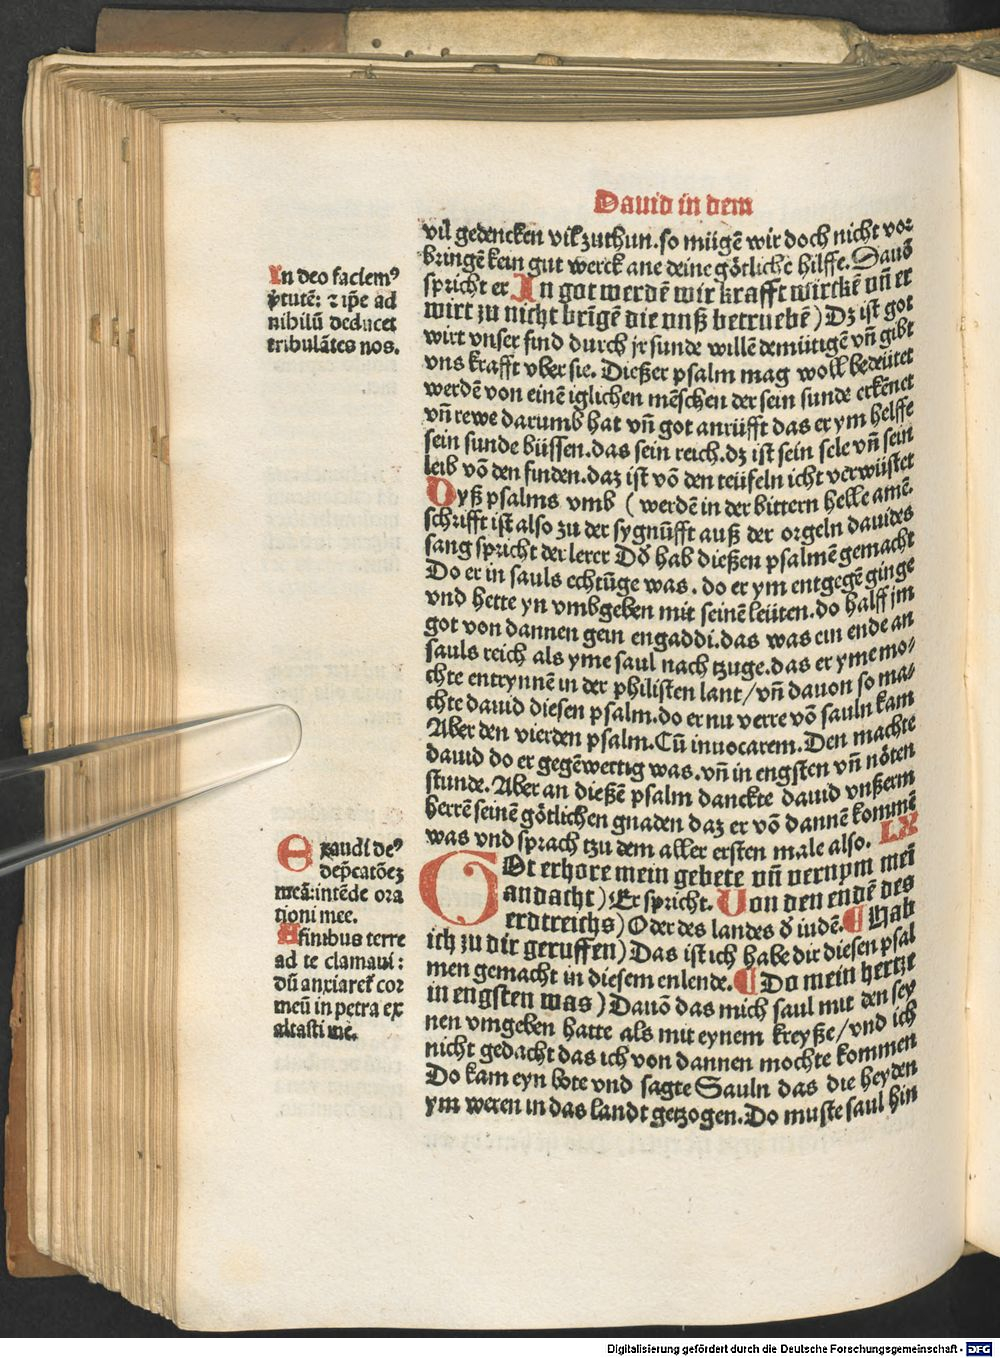 Dauid in dem
vil gedencken vil zuthun. so mügē wir doch nicht vor⸗
bringē kein gut werck ane deine götliche hilffe. Dauō
spricht er In got werdē wir krafft wirckē vñ er
wirt zu nicht brīgē die vnß betruebē) Dz ist got
wirt vnser find durch jr sunde willē demütigē vñ gibt
vns krafft vber sie. Dießer psalm mag woll bedeütet
werdē von einē iglichen mēschen der sein sunde erkēnet
vñ rewe darumb hat vñ got anrüfft das er ym helffe
sein sunde büssen. das sein reich. dz ist sein sele vñ sein
leib vō den finden. daz ist vō den teüfeln icht verwüstet
Dyß psalms vmb ( werdē in der bittern helle amē.
schrifft ist also zu der sygnüfft auß der orgeln dauides
sang spricht der lerer Dō hab dießen psalmē gemacht
Do er in sauls echtūge was. do er ym entgegē ginge
vnd hette yn vmbgeben mit seinē leüten. do halff jm
got von dannen gein engaddi. das was ein ende an
sauls reich als yme saul nach tzuge. das er yme mo⸗
chte entrynnē in der philisten lant / vñ dauon so ma⸗
chte dauid diesen psalm. do er nu verre vō sauln kam
Aber den vierden psalm. Cū inuocarem. Den machte
dauid do er gegēwertig was. vñ in engsten vñ nöten
stunde. Aber an dießē psalm danckte dauid vnßerm
herrē seinē götlichen gnaden daz er vō dannē kommē
was vnd sprach tzu dem aller ersten male also. LX
GOt erhore mein gebete vñ vernym mei
andacht) Er spricht. Von den endē des
erdtreichs) Oder des landes ð iudē. ¶ Hab
ich zu dir geruffen) Das ist ich habe dir diesen psal
men gemacht in diesem enlende. ¶ Do mein hertze
in engsten was) Dauō das mich saul mit den sey
nen vmgeben hatte als mit eynem kreyße / vnd ich
nicht gedacht das ich von dannen mochte kommen
Do kam eyn bote vnd sagte Sauln das die heyden
ym weren in das landt getzogen. Do muste saul hin
In deo faciemꝰ
v̓tutē: ⁊ ip̄e ad
nihilū deducet
tribulātes nos.
Exaudi deꝰ
dep̄catōez
meā: intēde ora
tioni mee.
A finibus terre
ad te clamaui:
dū anxiaret̄ cor
meū in petra ex
altasti me.
Digitalisierung gefördert durch die Deutsche Forschungsgemeinschaft - DFG